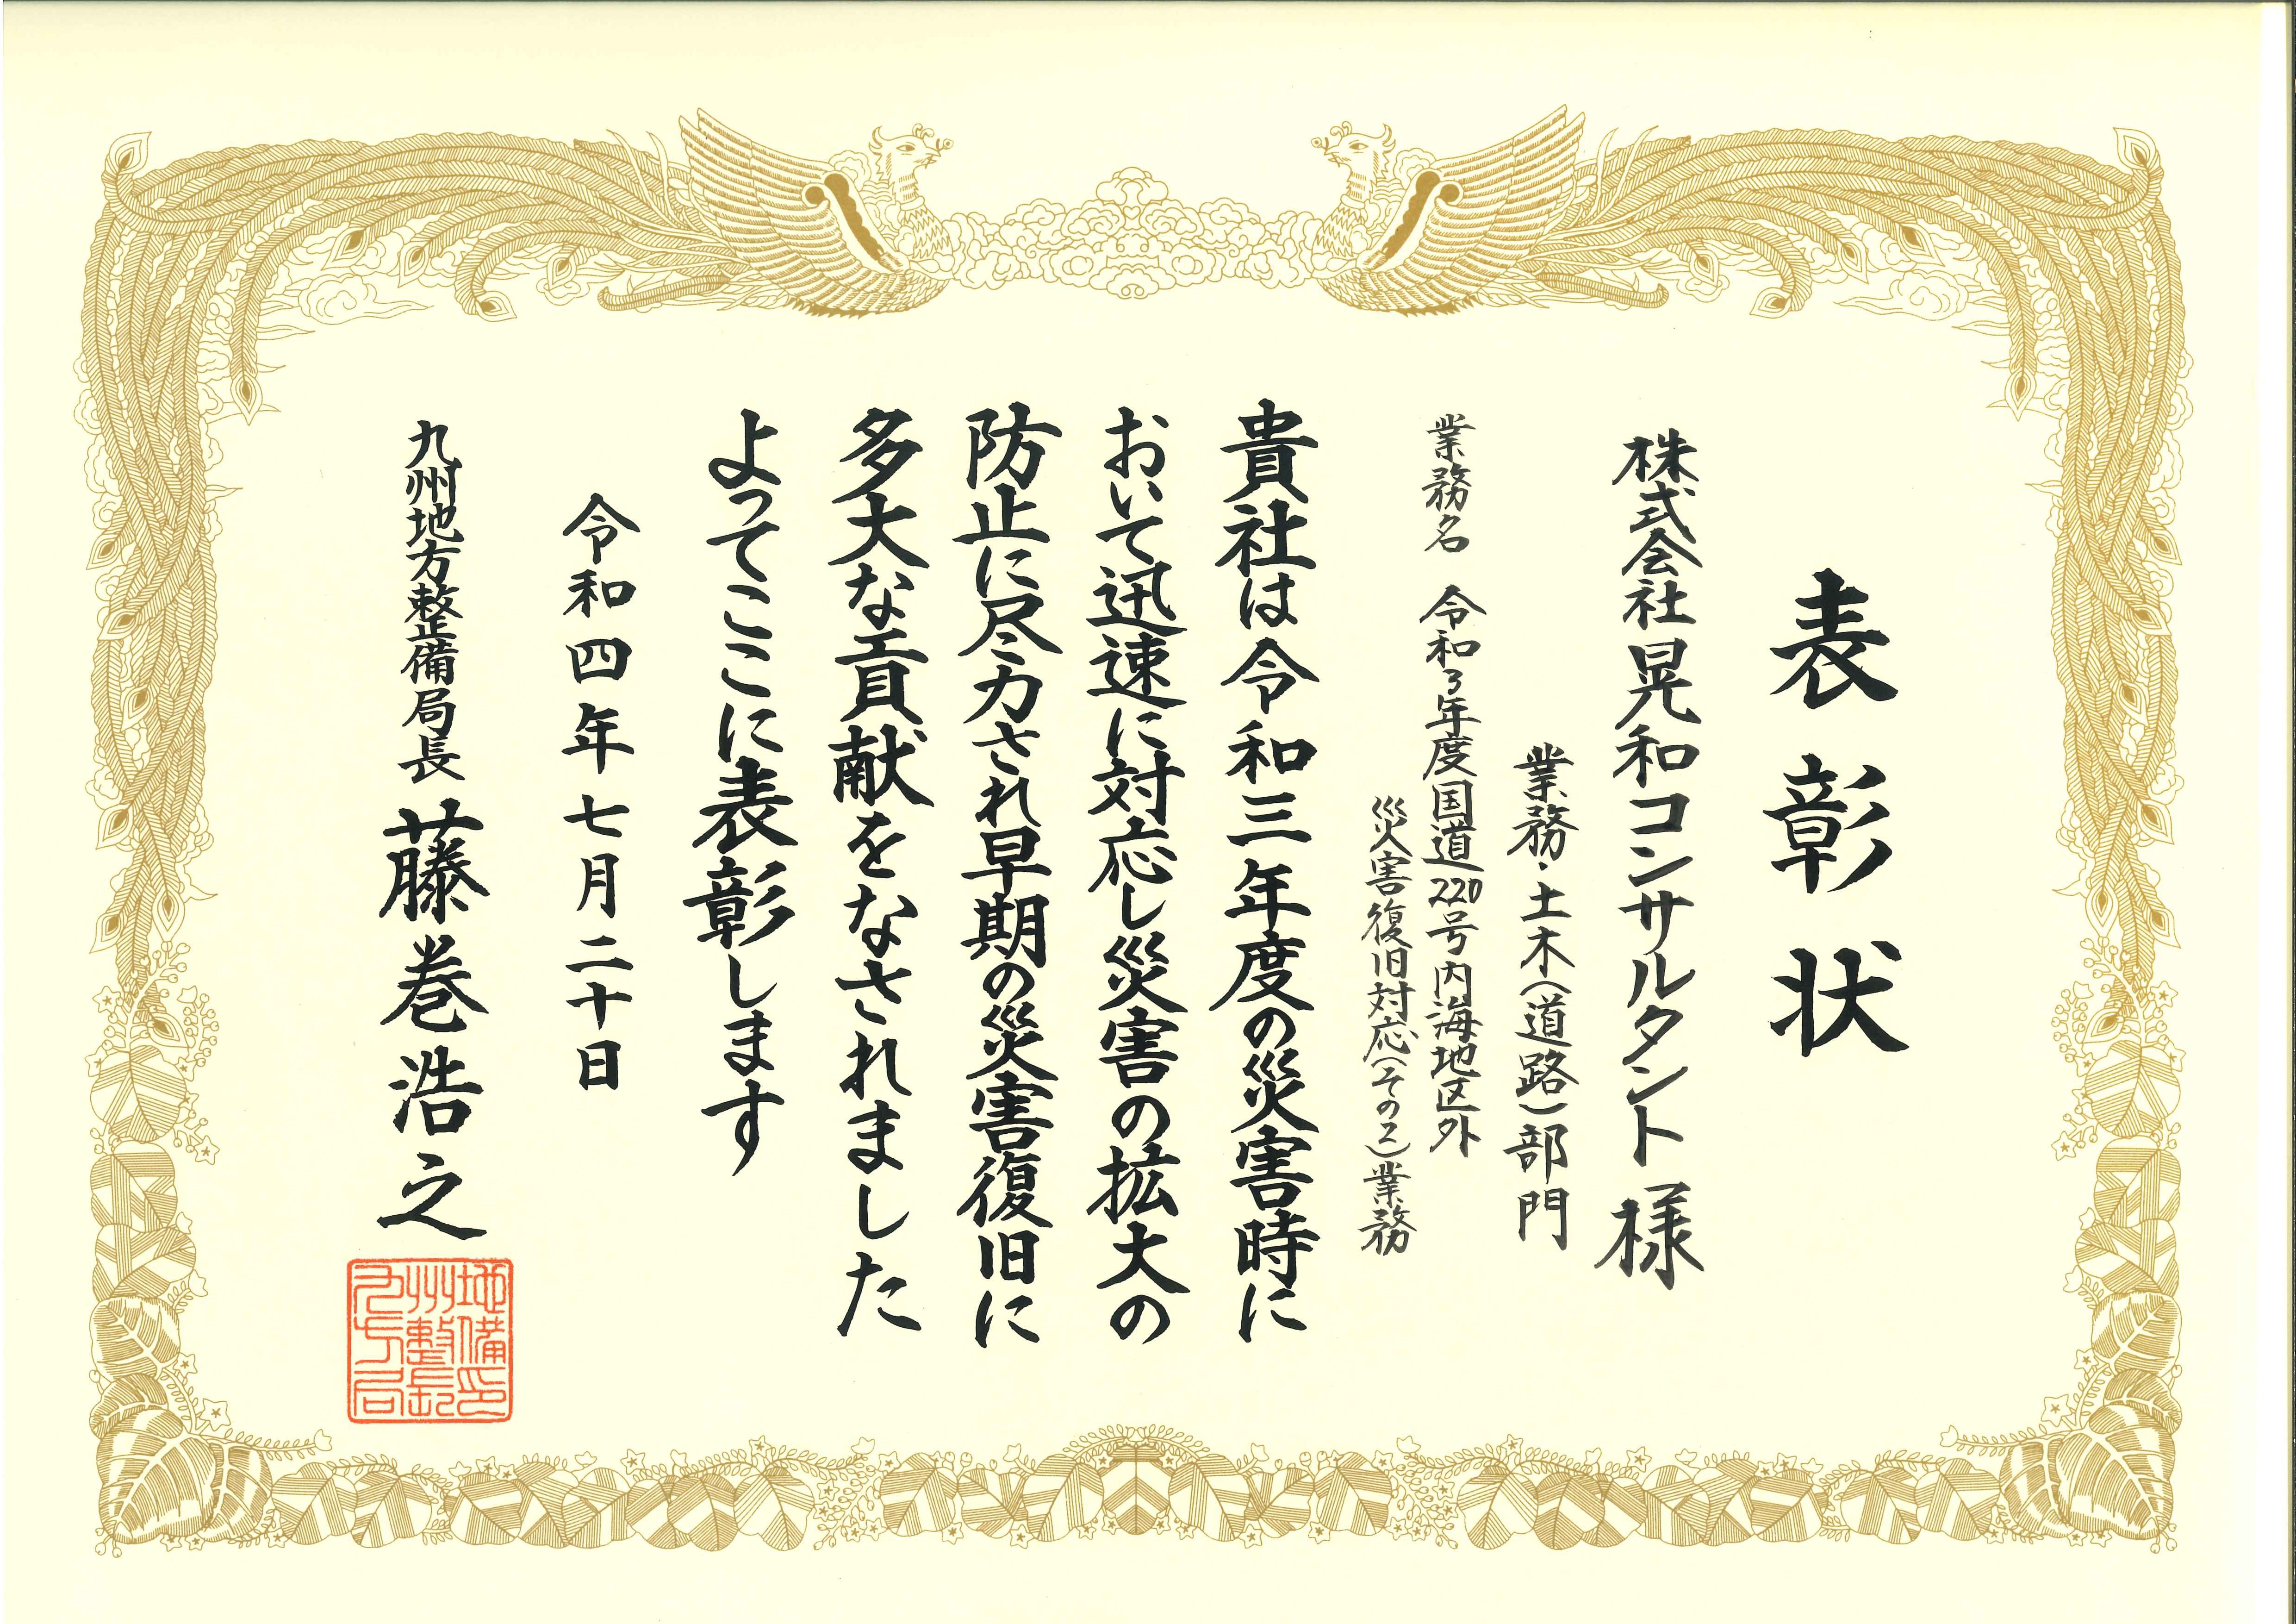 表彰状
株式会社晃和コンサルタント様
業務・土木(道路)部門
業務名 令和3年度国道220号内海地区外
災害復旧対応(その2)業務
貴社は令和三年度の災害時に
おいて迅速に対応し災害の拡大の
防止に尽力され早期の災害復旧に
多大な貢献をなされました
よってここに表彰します
令和四年七月二十日
九州地方整備局長 藤巻浩之
地備印
州整長
九方局